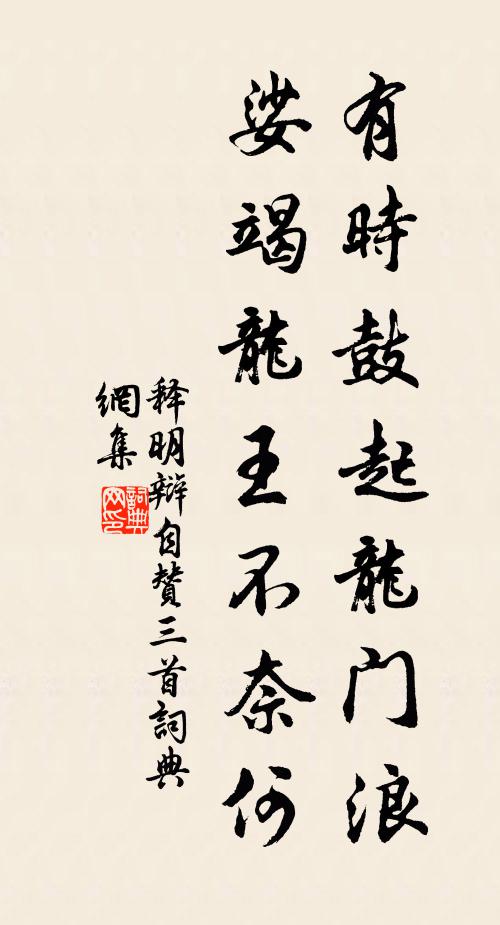 有時鼓起龍門浪
娑竭龍王不奈何
释明辯自賛三首詞典
網集
詞典網印